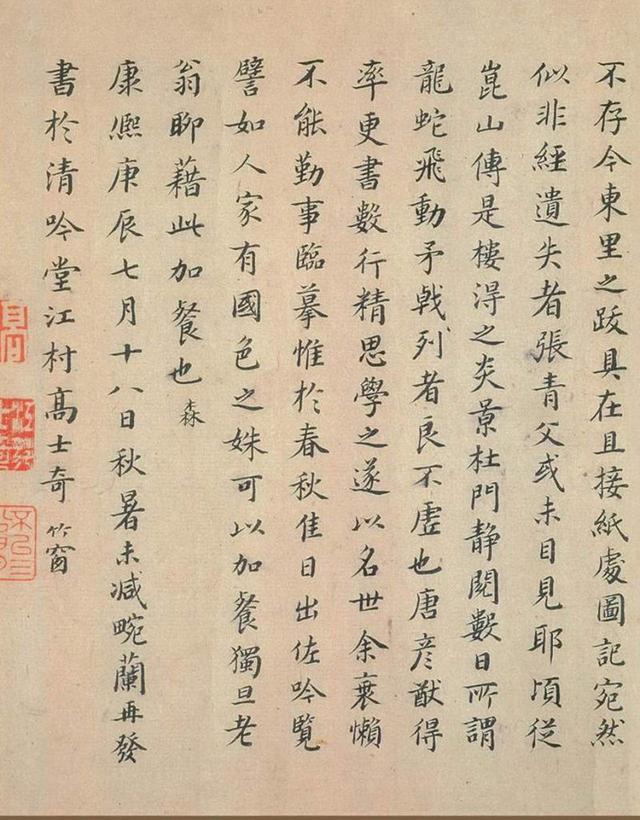 不存今東里之跋具在且接紙處圖記宛然
似非經遺失者張青父或未目見耶頃從
崑山傳是樓得之炎景杜門靜閱數日所謂
龍蛇飛動矛戟列者良不虛也唐彥猷得
率更書數行精思學之遂以名世余衰懶
不能勤事臨摹惟於春秋佳日出佐吟覧
譬如人家有國色之姝可以加餐獨旦老
翁聊藉此加餐也 森
康熈庚辰七月十八日秋暑未減畹蘭再發
書於清吟堂江村髙士奇 竹窗